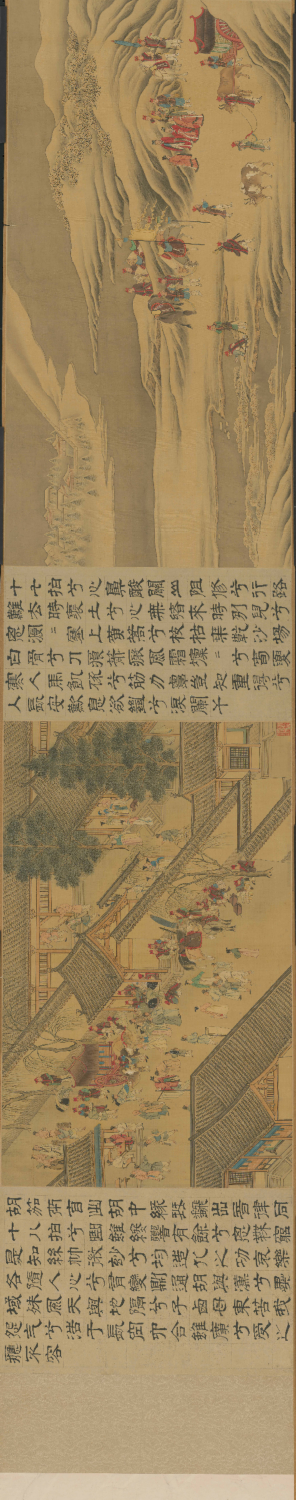 十七拍兮心鼻酸關山阻修兮行路
難去時懷土兮心無緒來時別兒兮
思漫〻塞上黃蒿兮枝枯葉乾沙場
白骨兮刀痕箭瘢風霜凜〻兮春夏
寒人馬飢豗兮筋力單豈知重得兮
入長安歎息欲絕兮淚闌干
胡笳本自出胡中緣琴翻出音律同
十八拍兮曲雖終響有餘兮思無窮
是知絲竹微妙兮均造化之功哀樂
各隨人心兮有變則通胡與漢兮異
域殊風天與地隔兮子西母東苦我
怨氣兮浩于長空六合雖廣兮受之
應不容